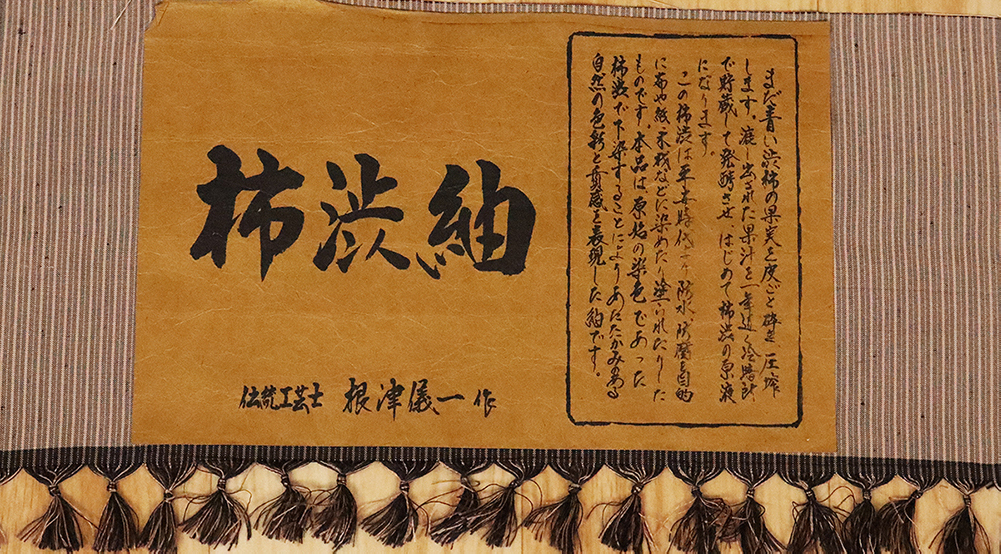 まだ青い渋柿の果実を皮ごと砕き圧搾
します。漉し出された果汁を一年近く冷暗所
で貯蔵して発酵させ、はじめて柿渋の原液
になります。
この柿渋は平安時代より防水、防腐を目的
に布や紙、木材などに染めたり塗られたりした
ものです。本品は原始の染色であった
柿渋で下染することによりあたたかみのある
自然の色彩と質感を表現した紬です。
柿渋紬
伝統工芸士 根津儀一作